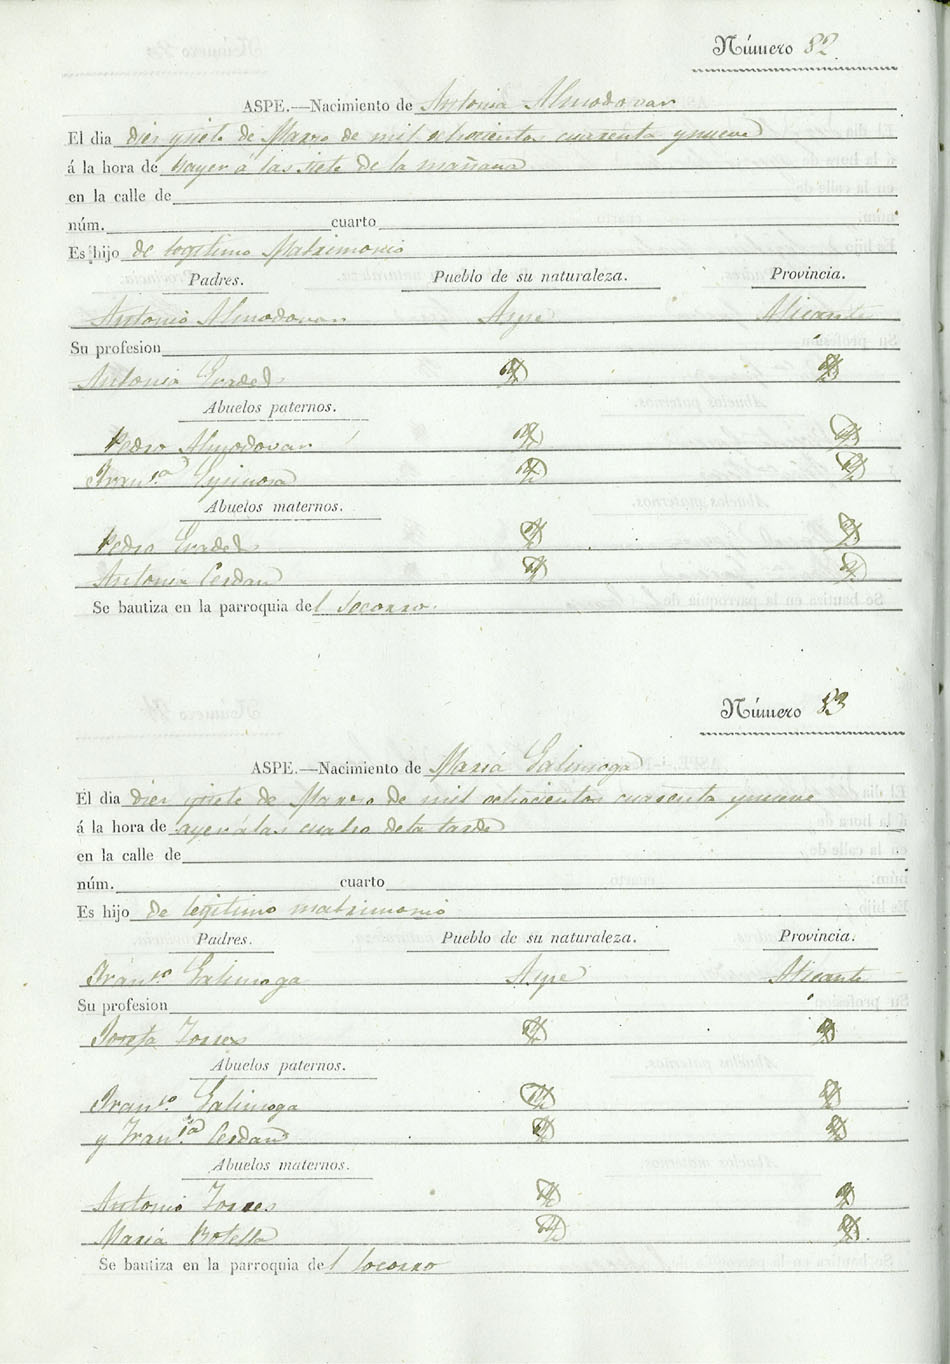 Número 82
ASPE.—Nacimiento de Antonia Almodovar
El dia diez y siete de Marzo de mil ochocientos cuarenta y nueve
á la hora de hayer á las siete de la mañana
en la calle de
núm. cuarto
Es hijo de legitimo Matrimonio
Padres. Pueblo de su naturaleza. Provincia.
Antonio Almodovar Aspe Alicante
Su profesion
Antonia
Abuelos paternos.
Pedro Almodovar
Fran.ca Espinosa
Abuelos maternos.
Pedro
Antonia Cerdan
Se bautiza en la parroquia del Socorro
Número 83
ASPE.—Nacimiento de Maria Galinsoga
El dia diez y siete de Marzo de mil ochocientos cuarenta y nueve
á la hora de ayer á las cuatro de la tarde
en la calle de
núm. cuarto
Es hijo de legitimo matrimonio
Padres. Pueblo de su naturaleza. Provincia.
Fran.co Galinsoga Aspe Alicante
Su profesion
Josefa Torres
Abuelos paternos.
Fran.co Galinsoga
y Fran.ca Cerdan
Abuelos maternos.
Antonio Torres
Maria Botella
Se bautiza en la parroquia del Socorro